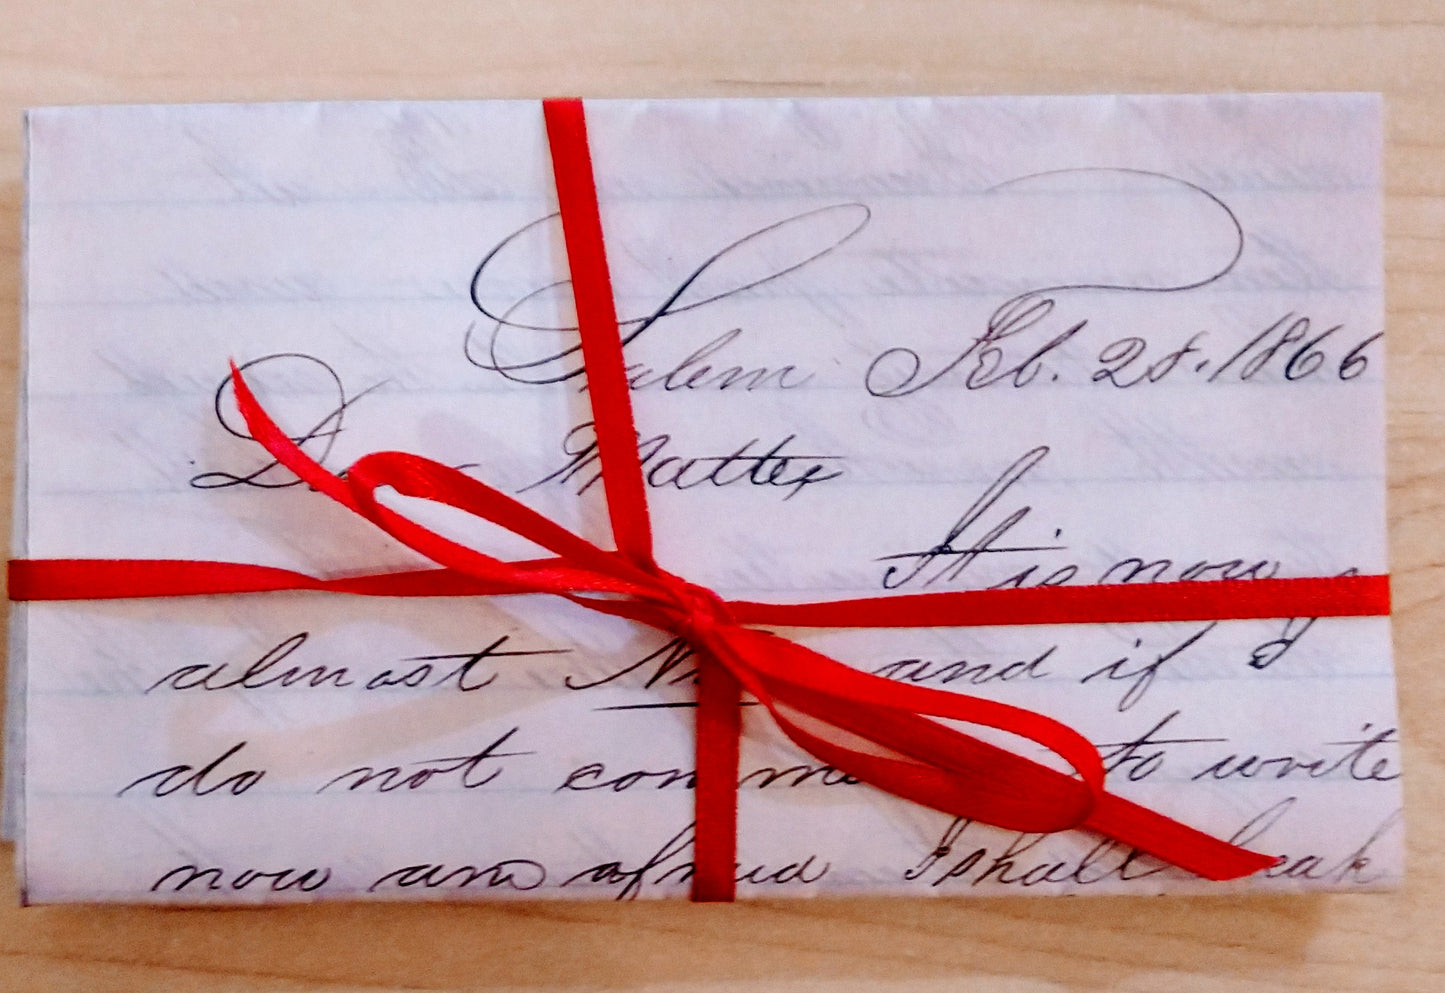 Salem Feb. 28. 1866
Dear Matter
It is now
almost and if
do not to write
now am afraid I shall